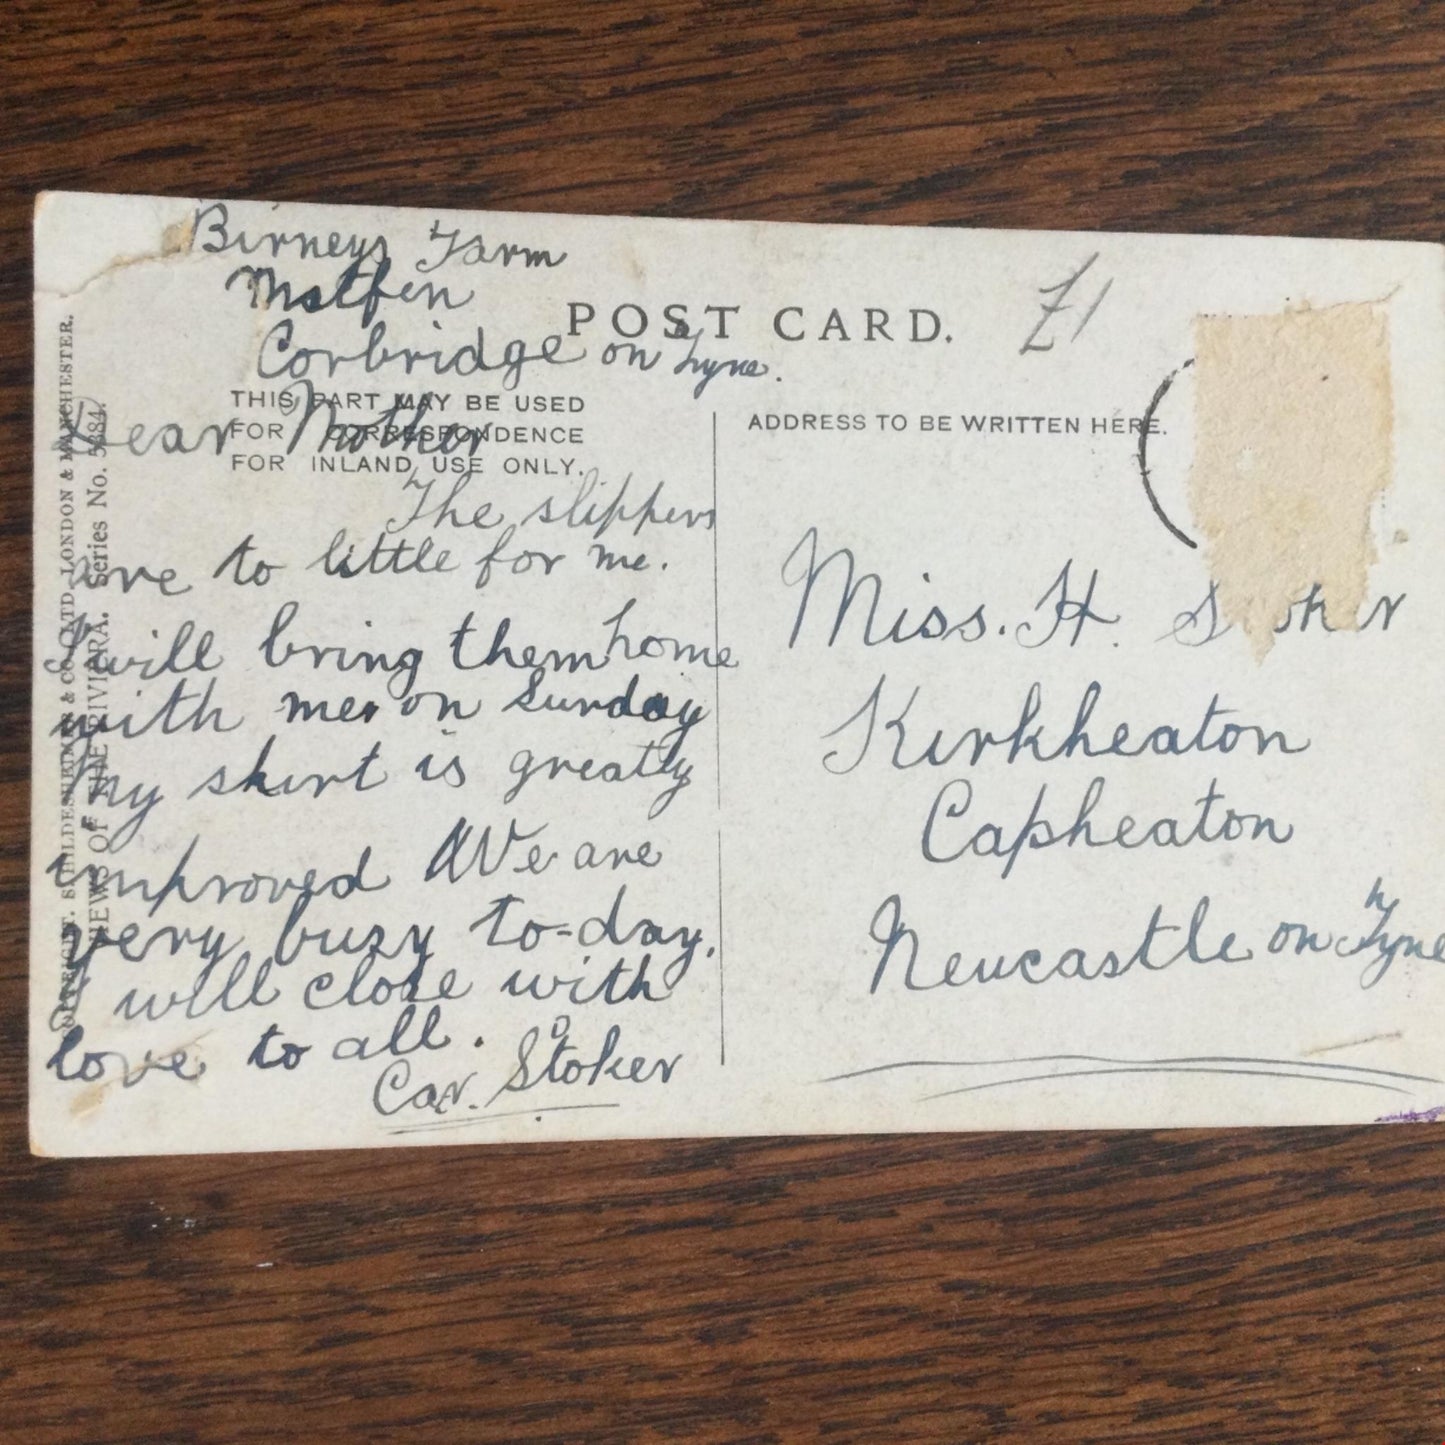 Birneys Farm
Matfen
Corbridge on Tyne.
POST CARD.
£1
THIS PART MAY BE USED
FOR CORRESPONDENCE
FOR INLAND USE ONLY.
ADDRESS TO BE WRITTEN HERE.
Dear Mother
The slippers
are to little for me.
I will bring them home
with me on Sunday
My skirt is greatly
improved We are
very busy to-day.
I will close with
love to all.
Car. Stoker
Miss. H. Stoker
Kirkheaton
Capheaton
Newcastle on Tyne
COPYRIGHT. SHELDESHEIMER & CO. LTD. LONDON & MANCHESTER.
VIEWS OF THE RIVIARA. Series No. 5284.